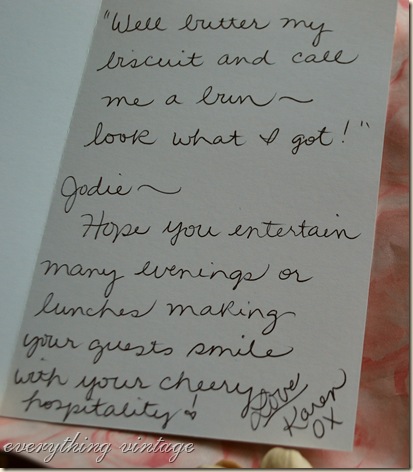 "Well butter my
biscuit and call
me a bun~
look what I got!"
Jodie~
Hope you entertain
many evenings or
lunches making
your guests smile
with your cheery
hospitality!
Love
Karen
OX
everything vintage